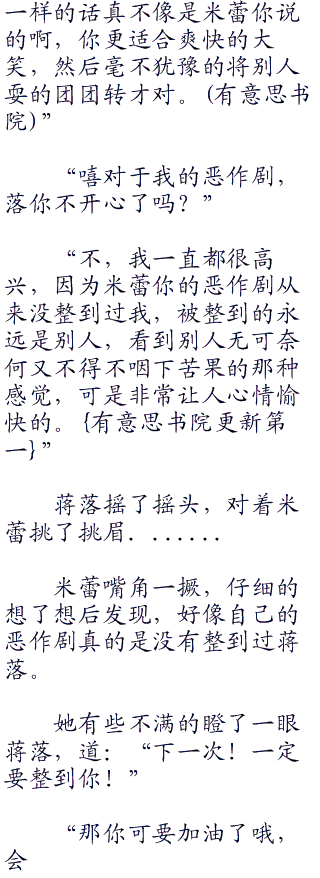 一样的话真不像是米蕾你说
的啊，你更适合爽快的大
笑，然后毫不犹豫的将别人
耍的团团转才对。(有意思书
院)”
“嘻对于我的恶作剧，
落你不开心了吗？”
“不，我一直都很高
兴，因为米蕾你的恶作剧从
来没整到过我，被整到的永
远是别人，看到别人无可奈
何又不得不咽下苦果的那种
感觉，可是非常让人心情愉
快的。{有意思书院更新第
一}”
蒋落摇了摇头，对着米
蕾挑了挑眉．......
米蕾嘴角一撅，仔细的
想了想后发现，好像自己的
恶作剧真的是没有整到过蒋
落。
她有些不满的瞪了一眼
蒋落，道：“下一次！一定
要整到你！”
“那你可要加油了哦，
会